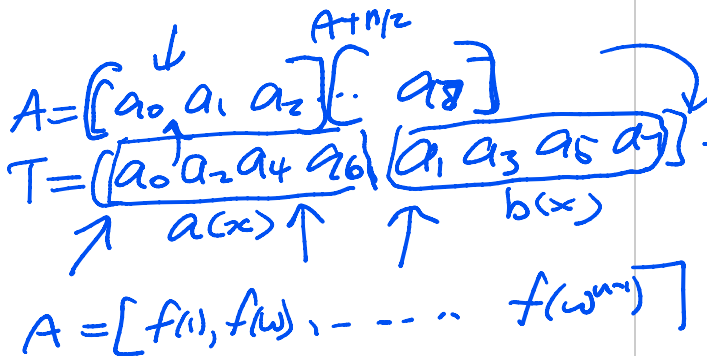 A+n/2
A = [a₀ a₁ a₂] [·· a₈]
T = [a₀ a₂ a₄ a₆] [a₁ a₃ a₅ a₇].
a(x) b(x)
A = [f(1), f(ω), ------ ·· f(ωⁿ⁻¹)]